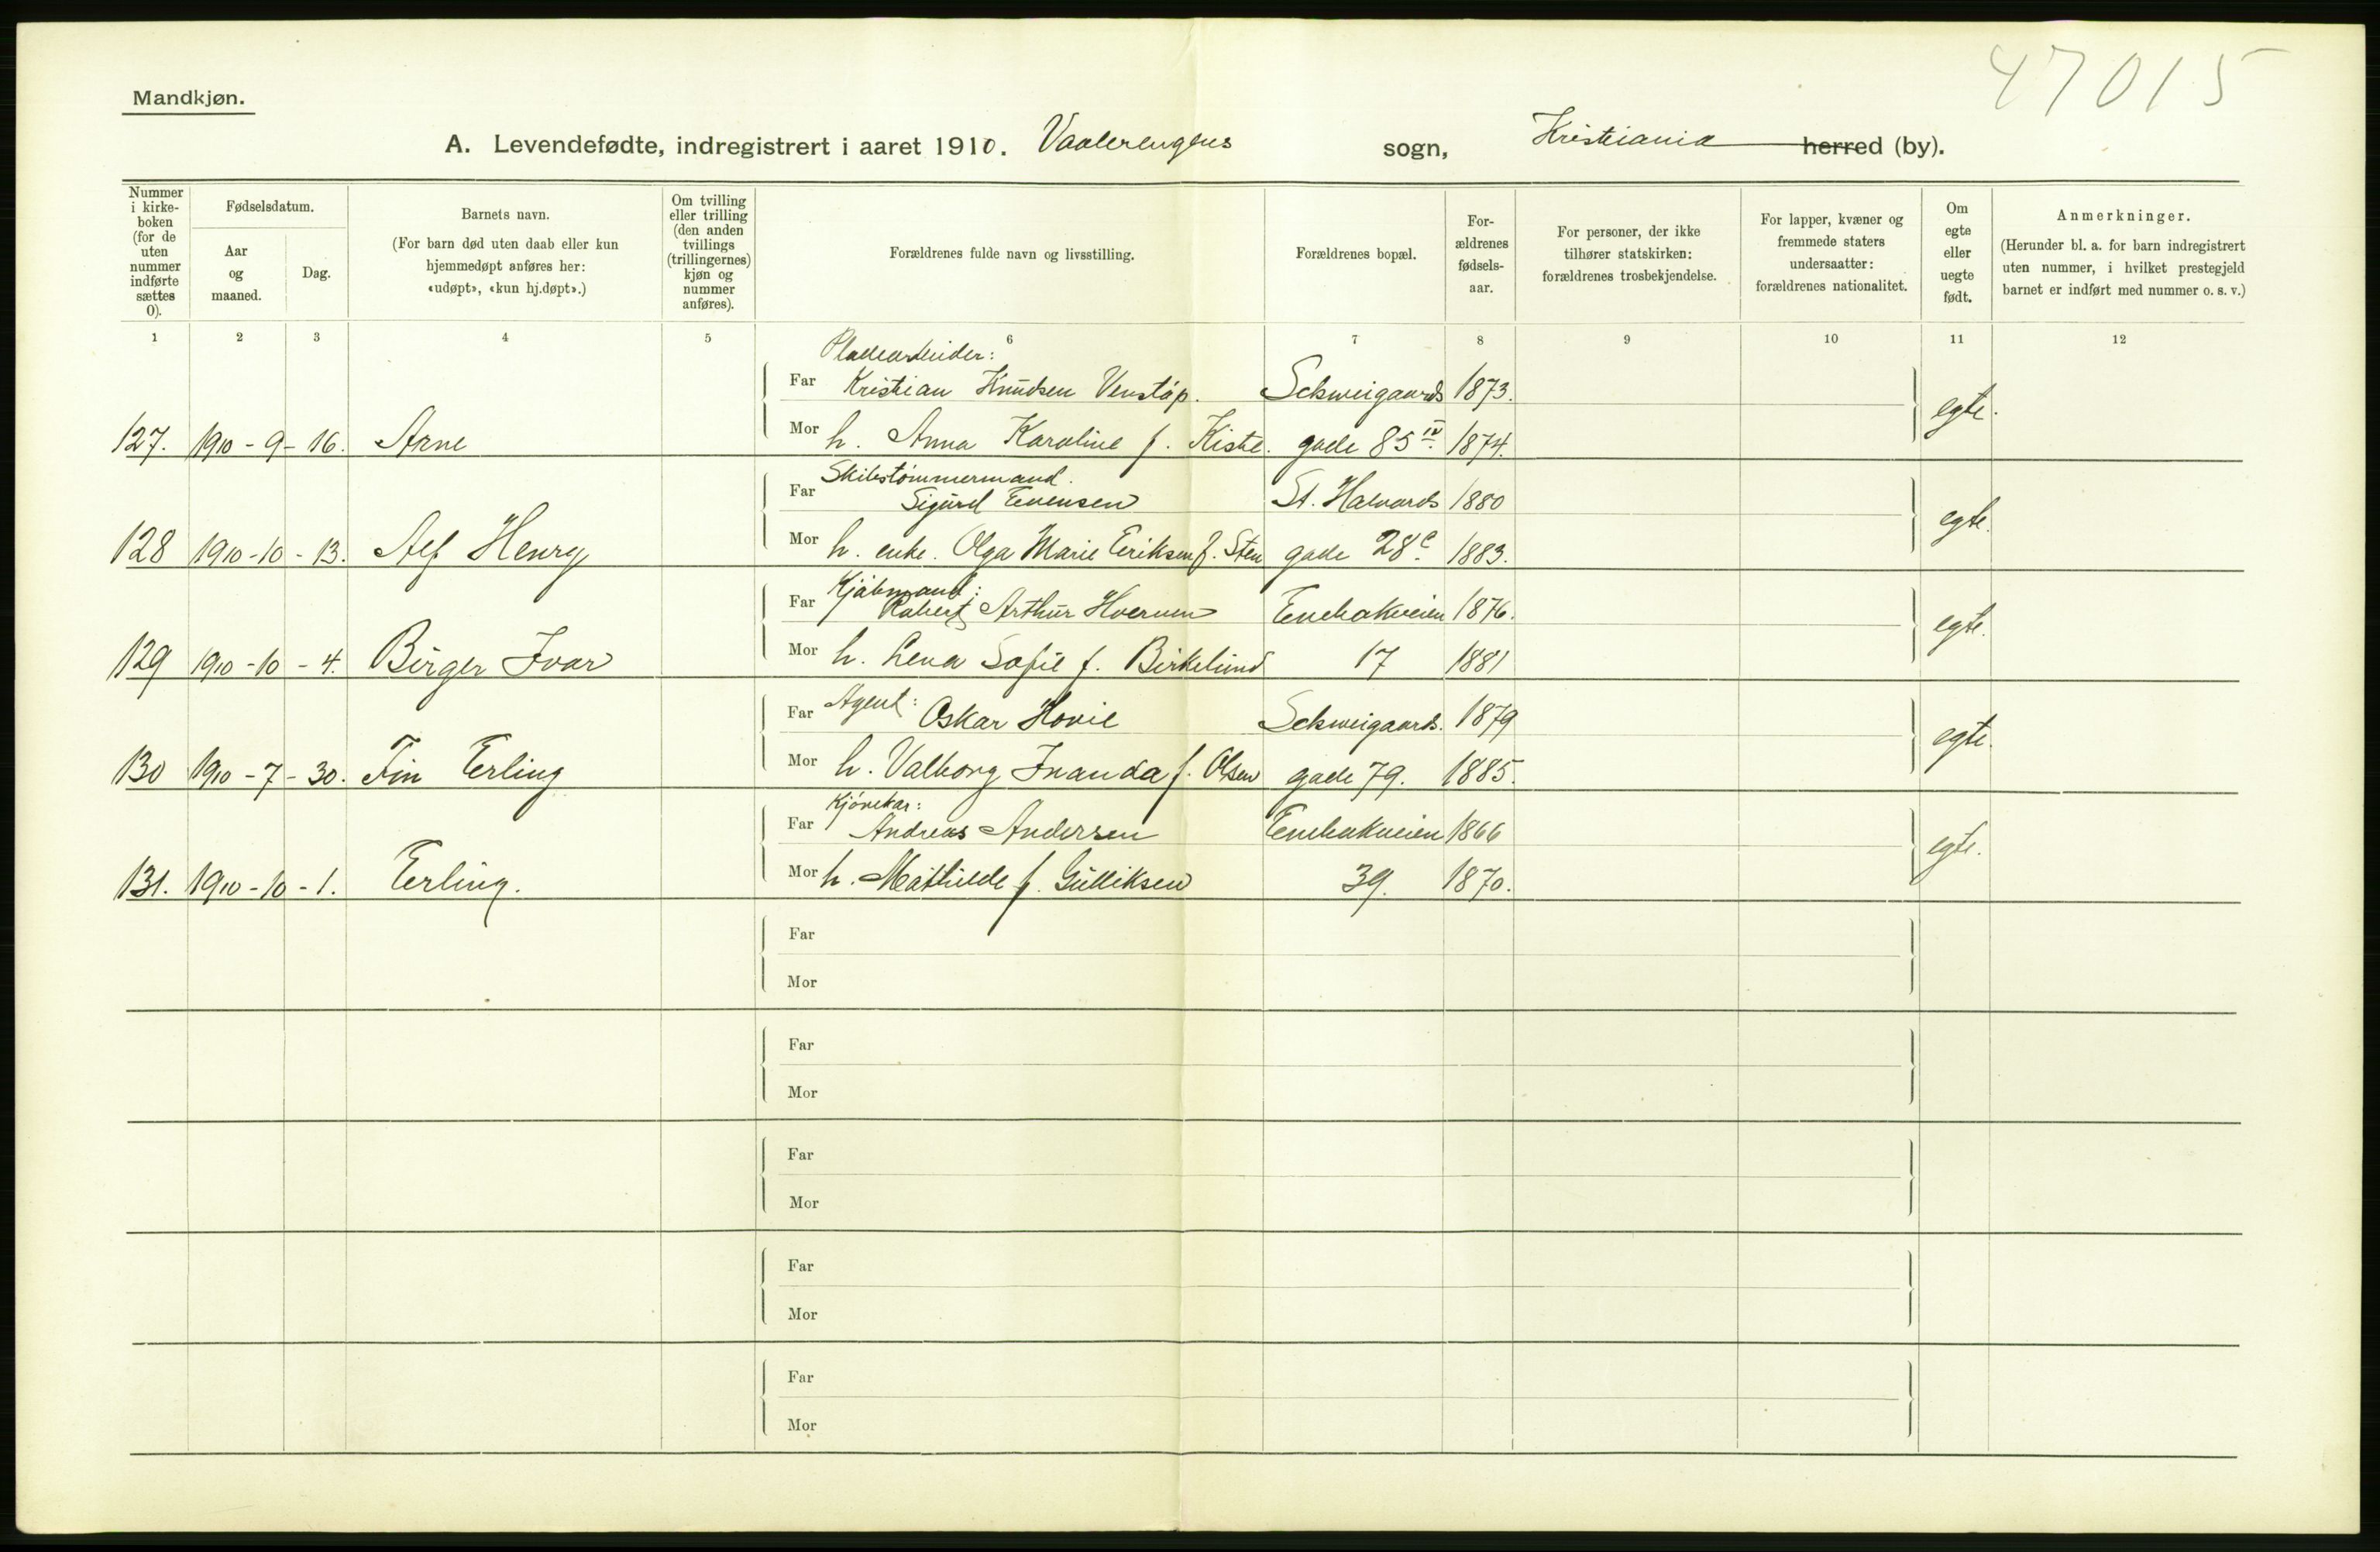 47015
Mandkjøn.
A. Levendefødte, indregistrert i aaret 1910. Vaalerengens sogn, Kristiania herred (by).
Nummer i kirke-boken (for de uten nummer indførte sættes 0).
Fødselsdatum.
Aar og maaned.
Dag.
Barnets navn.
(For barn død uten daab eller kun hjemmedøpt anføres her: «udøpt», «kun hj.døpt».)
Om tvilling eller trilling (den anden tvillings (trillingernes) kjøn og nummer anføres).
Forældrenes fulde navn og livsstilling.
Forældrenes bopæl.
For-ældrenes fødsels-aar.
For personer, der ikke tilhører statskirken: forældrenes trosbekjendelse.
For lapper, kvæner og fremmede staters undersaatter: forældrenes nationalitet.
Om egte eller uegte født.
Anmerkninger.
(Herunder bl. a. for barn indregistrert uten nummer, i hvilket prestegjeld barnet er indført med nummer o. s. v.)
1 2 3 4 5 6 7 8 9 10 11 12
Pladearbeider:
Far Kristian Knudsen Venstøp. Schweigaards 1873.
127. 1910-9-16. Arne Mor h. Anna Karoline f. Kise. gade 85 IV. 1874. egte.
Skibstømmermand.
Far Sigurd Evensen St. Halvards 1880
128 1910-10-13. Alf Henry Mor h. enke. Olga Marie Eriksen f. Sten gade 28c. 1883. egte.
Kjøbmand:
Far Robert Arthur Hoernen Enebakveien 1876.
129 1910-10-4. Birger Ivar Mor h. Lena Sofie f. Birkelund 17 1881 egte.
Far Agent: Oskar Hovie Schweigaards. 1879
130 1910-7-30. Fin Erling Mor h. Valborg Inanda f. Olsen gade 79. 1885. egte.
Far Andreas Andersen Enebakveien 1866
131. 1910-10-1. Erling. Mor h. Mathilde f. Gulliksen 39. 1870. egte.
Far
Mor
Far
Mor
Far
Mor
Far
Mor
Far
Mor